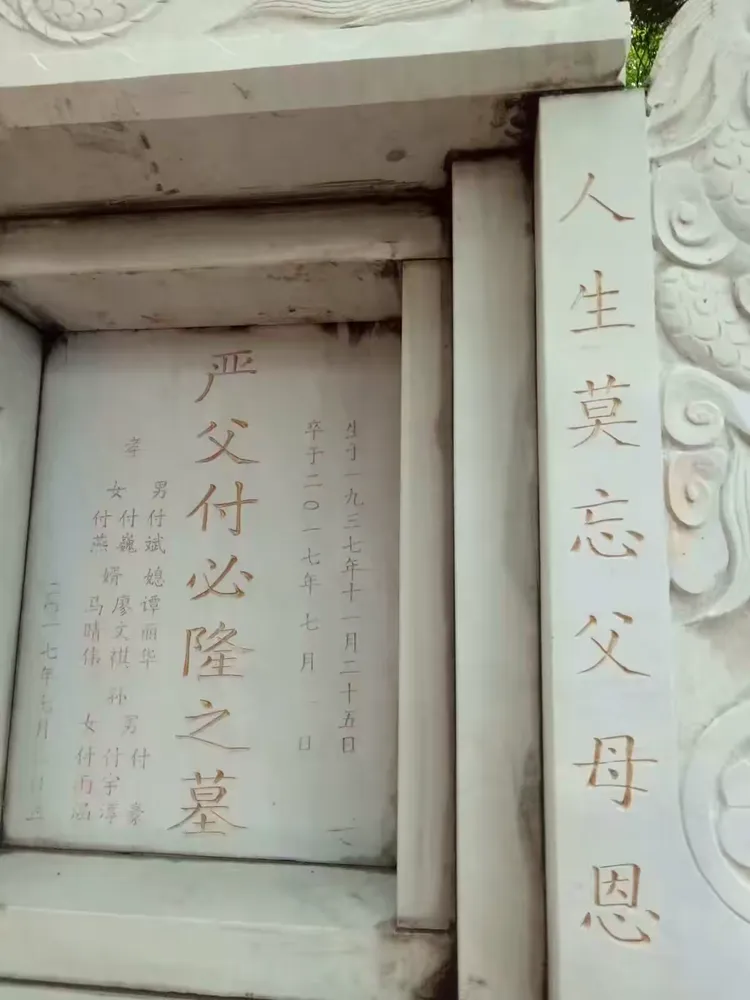 人生莫忘父母恩
生于一九三七年十一月二十五日
卒于二0一七年七月一日
严父付必隆之墓
孝
男付斌 媳谭丽华
女付巍 婿廖文祺 孙男付
付燕 马晴伟 女付雨涵
付宇谭
二0一七年七月